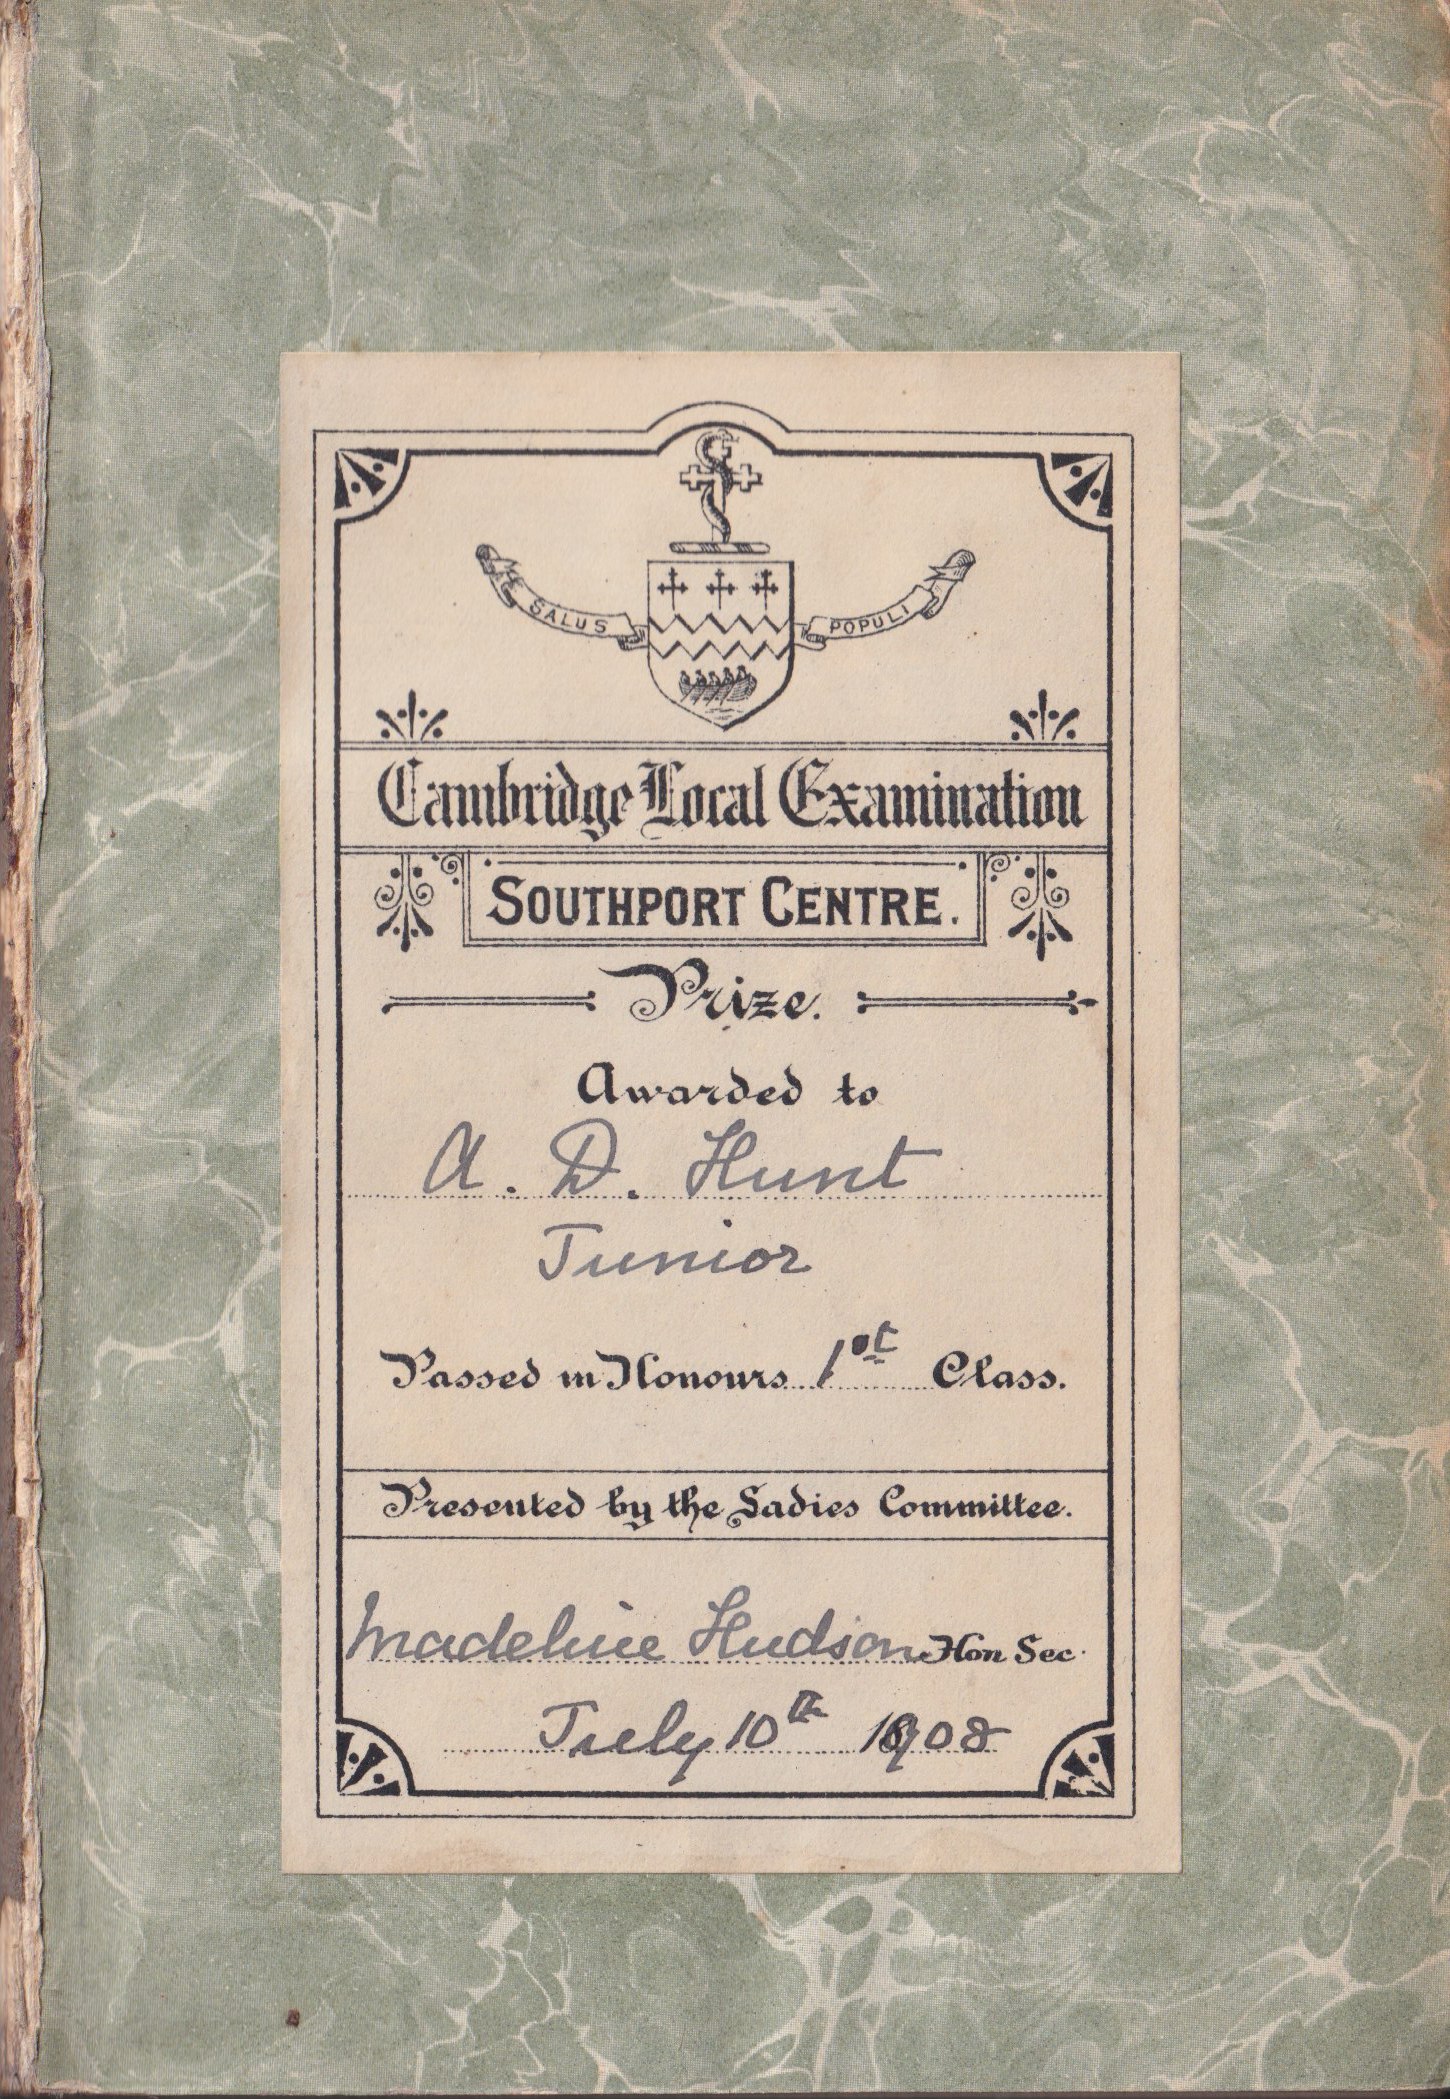 SALUS POPULI
Cambridge Local Examination
SOUTHPORT CENTRE.
Prize.
Awarded to
A. D. Hunt
Junior
Passed in Honours 1st Class.
Presented by the Ladies Committee.
Madeline Hudson Hon Sec.
July 10th 1908